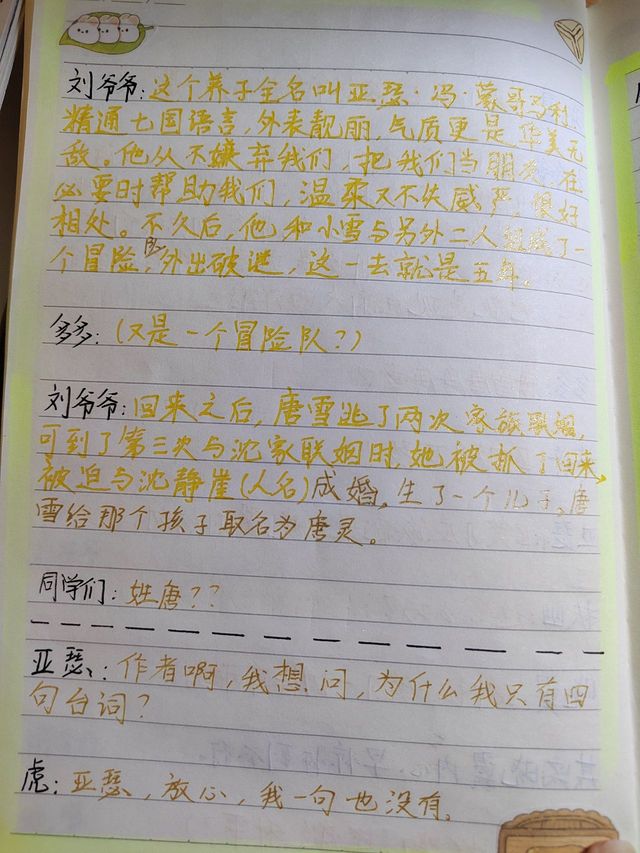 刘爷爷:这个养子全名叫亚瑟·冯·蒙哥马利,
精通七国语言,外表靓丽,气质更是华美无
敌。他从不嫌弃我们,把我们当朋友,在
必要时帮助我们,温柔又不失威严,很好
相处。不久后,他和小雪与另外二人组成了一
个冒险队,外出破谜,这一去就是五年。
多多:(又是一个冒险队?)
刘爷爷:回来之后,唐雪逃了两次家族联姻,
可到了第三次与沈家联姻时,她被抓了回来,
被迫与沈静崖(人名)成婚,生了一个儿子。唐
雪给那个孩子取名为唐灵。
同学们:姓唐??
亚瑟:作者啊,我想问,为什么我只有四
句台词?
虎:亚瑟,放心,我一句也没有。